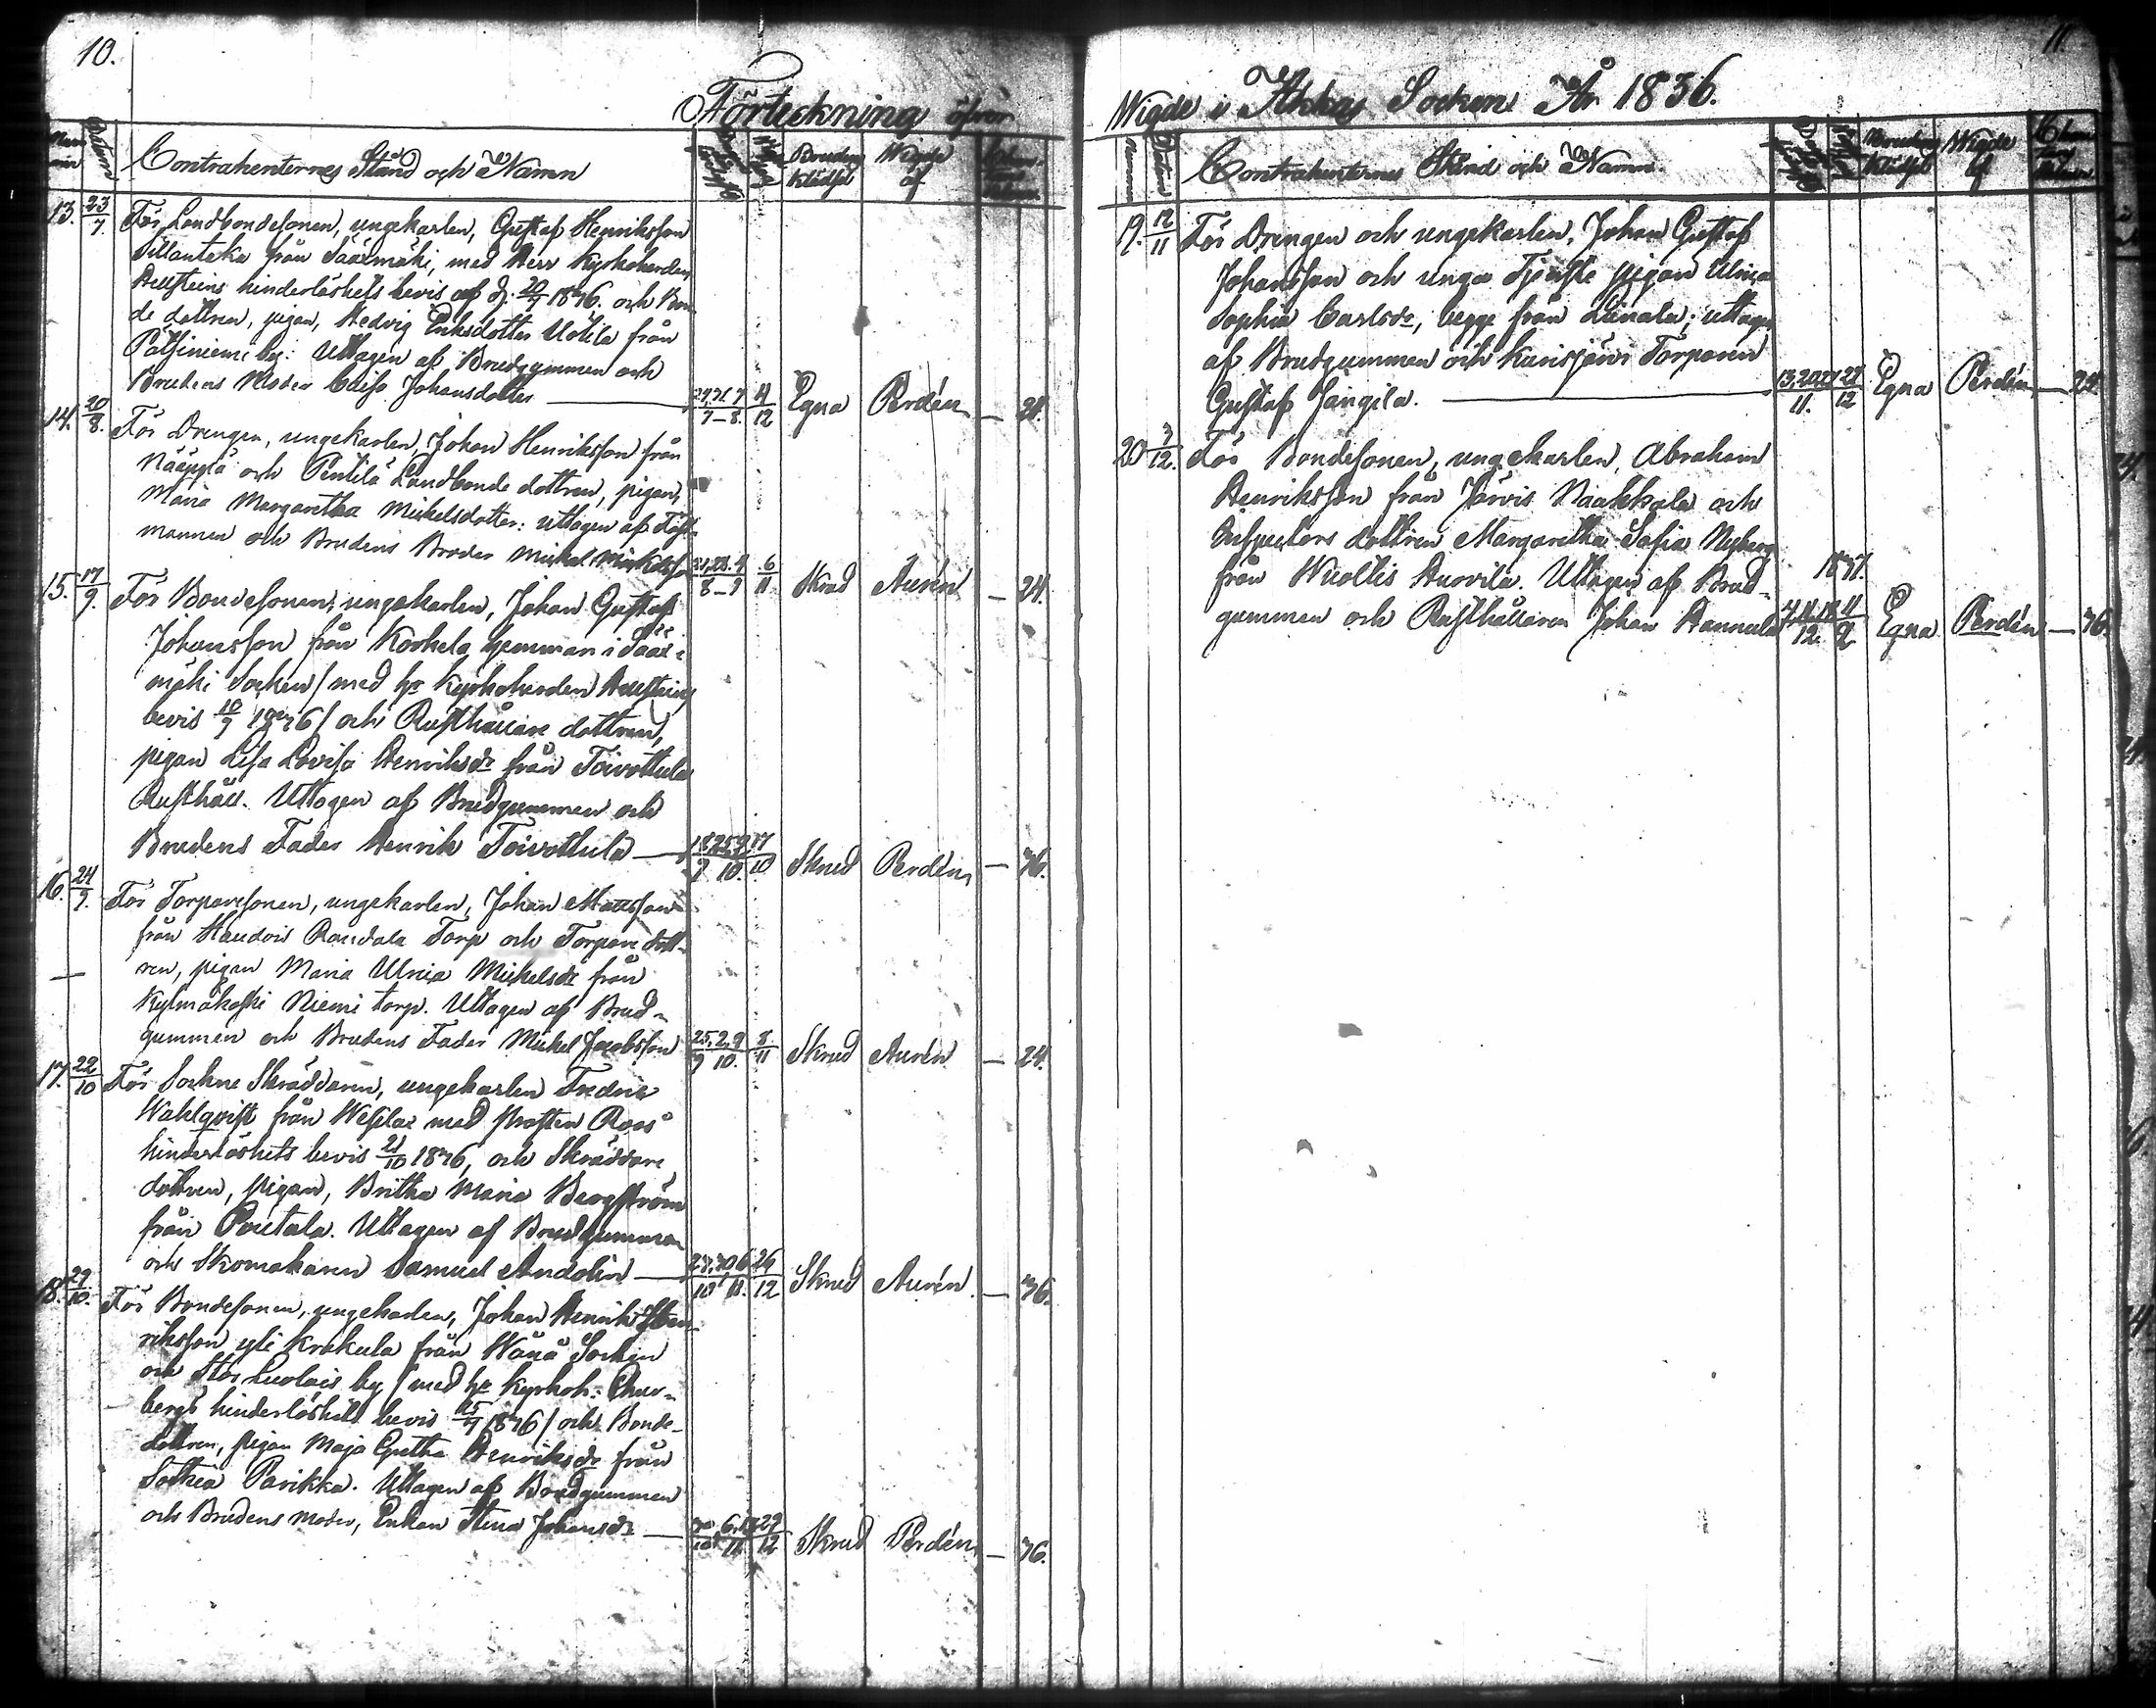 10.
Förteckning öfver
Datum
Contrahenternes Stånd och Namn
Brudens Klädsel
Wigde af
13. 23/7 För Landbondesonen, ungekarlen, Gustaf Henriksson
från Sääxmäki, med Herr Kyrkoherden
Hellsteins hinderlöshets bevis af d. 20/7 1836. och Bon-
de dottren, pigan, Hedvig Eriksdotter Uotila från
Pätsiniemi by: Uttagen af Brudgummen och
Brudens Moder Caisa Johansdotter 24, 31, 7 / 7-8. 4/12 Egna Perdén — 24.
14. 20/8. För Drengen, ungekarlen, Johan Henriksson från
Nääppiä och Pentilä Landbonde dottren, pigan,
Maria Margaretha Mickelsdotter: uttagen af Fäst-
mannen och Brudens Broder Mickel Mickelsson 21, 28. 4 / 8-9 6/11. Skrud Aurén — 24.
15. 17/9. För Bondesonen, ungekarlen, Johan Gustaf
Johansson från Koskela hemman i Sääx-
mäki Socken / med hr Kyrkoherden Hellsteins
bevis 10/9 1836 / och Rusthållare dottren,
pigan Lisa Lovisa Henriksdr från Toivottula
Rusthåll. Uttagen af Brudgummen och
Brudens Fader Henrik Toivottula — 18, 25, 2 / 9 10. 17/10 Skrud Perdén — 36.
16. 24/9. För Torparesonen, ungekarlen, Johan Mattsson
från Haudois Randala Torp och Torpare dott-
ren, pigan Maria Ulrica Mickelsdr från
Kylmäkoski Niemi torp. Uttagen af Brud-
gummen och Brudens Fader Mickel Jacobsson 25, 2, 9 / 9 10. 8/11 Skrud Aurén — 24.
17. 22/10 För Sockne Skräddaren, ungekarlen Fredric
Wahlqvist från Wesilax med Prosten Roos
hinderlöshets bevis 21/10 1836, och Skräddare
dottren, pigan, Britha Maria Bergström
från Pouttula. Uttagen af Brudgummen
och Skomakaren Samuel Andolin — 23, 30, 6 / 10 11. 26/12 Skrud Aurén. — 36.
18. 29/10. För Bondesonen, ungekarlen, Johan Henrik Hen-
riksson yli Krekula från Wånå Socken
och Stor Luolais by / med hr Kyrkoh:
bergs hinderlöshets bevis 25/9 1836 / och Bonde-
dottren, pigan Maja Gretha Henriksdr från
Sotkia Parikka. Uttagen af Brudgummen
och Brudens moder, Enkan Stina Johansdr — 30, 6, 13 / 10 11. 29/12 Skrud Perdén — 36.
11.
Wigde i Akkas Socken År 1836.
Datum
Contrahenternes Stånd och Namn.
Brudens Klädsel
Wigde af
19. 12/11 För Drengen och ungekarlen, Johan Gustaf
Johansson och unga Tjenste pigan Ulrica
Sophia Carlsdr, begge från Lunala; uttagen
af Brudgummen och Kurisjärvi Torparen
Gustaf Jangila. — 13, 20, 27 / 11. 27/12 Egna Perdén — 24.
20 3/12. För Bondesonen, ungekarlen, Abraham
Henriksson från Järvis Naakkala och
Inspectors dottren Margaretha Sofia Nyberg
från Wuoltis Anovila. Uttagen af Brud- 1837.
gummen och Rusthållaren Johan Hannula 4, 11, 18 / 12. 11/2 Egna Perdén — 36.